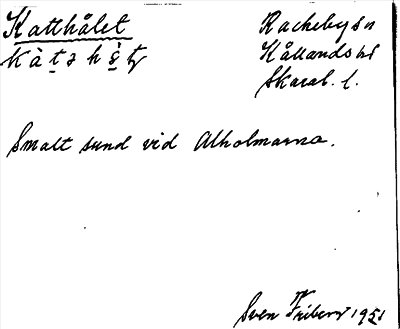 Katthålet
Rackeby sn
Kållands hd
Skarab. l.
Smalt sund vid Alholmarna.
Sven Friberg 1951